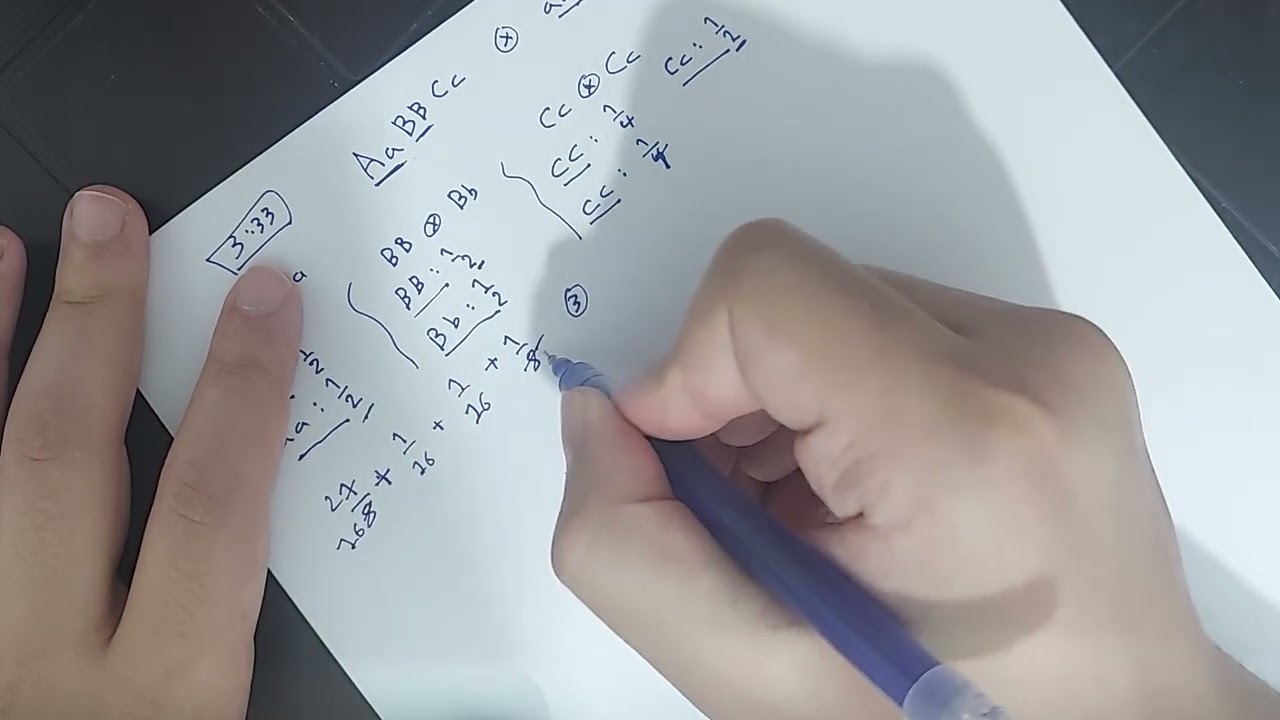 3:33
AaBBCc ⊗
BB ⊗ Bb
BB: 1/2
Bb: 1/2
Cc ⊗ Cc
CC: 1/4
cc: 1/4
Cc: 1/2
a
1/2
a: 1/2
③
+ 1/16 + 1/16 + 1/8